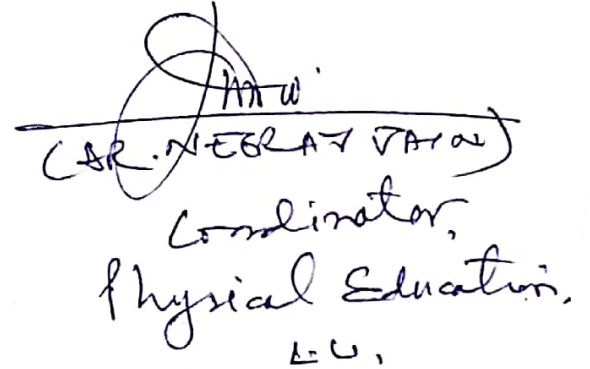 (DR. NEERAJ JAIN)
Coordinator,
Physical Education,
L.U,